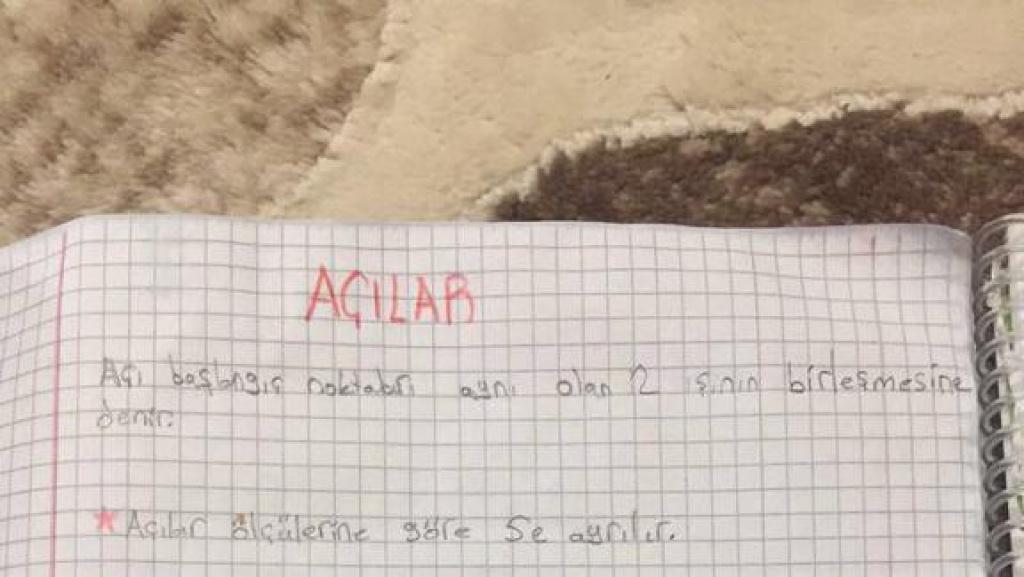 AÇILAR
Açı başlangıç noktaları aynı olan 2 ışının birleşmesine
denir.
* Açılar ölçülerine göre 5e ayrılır.